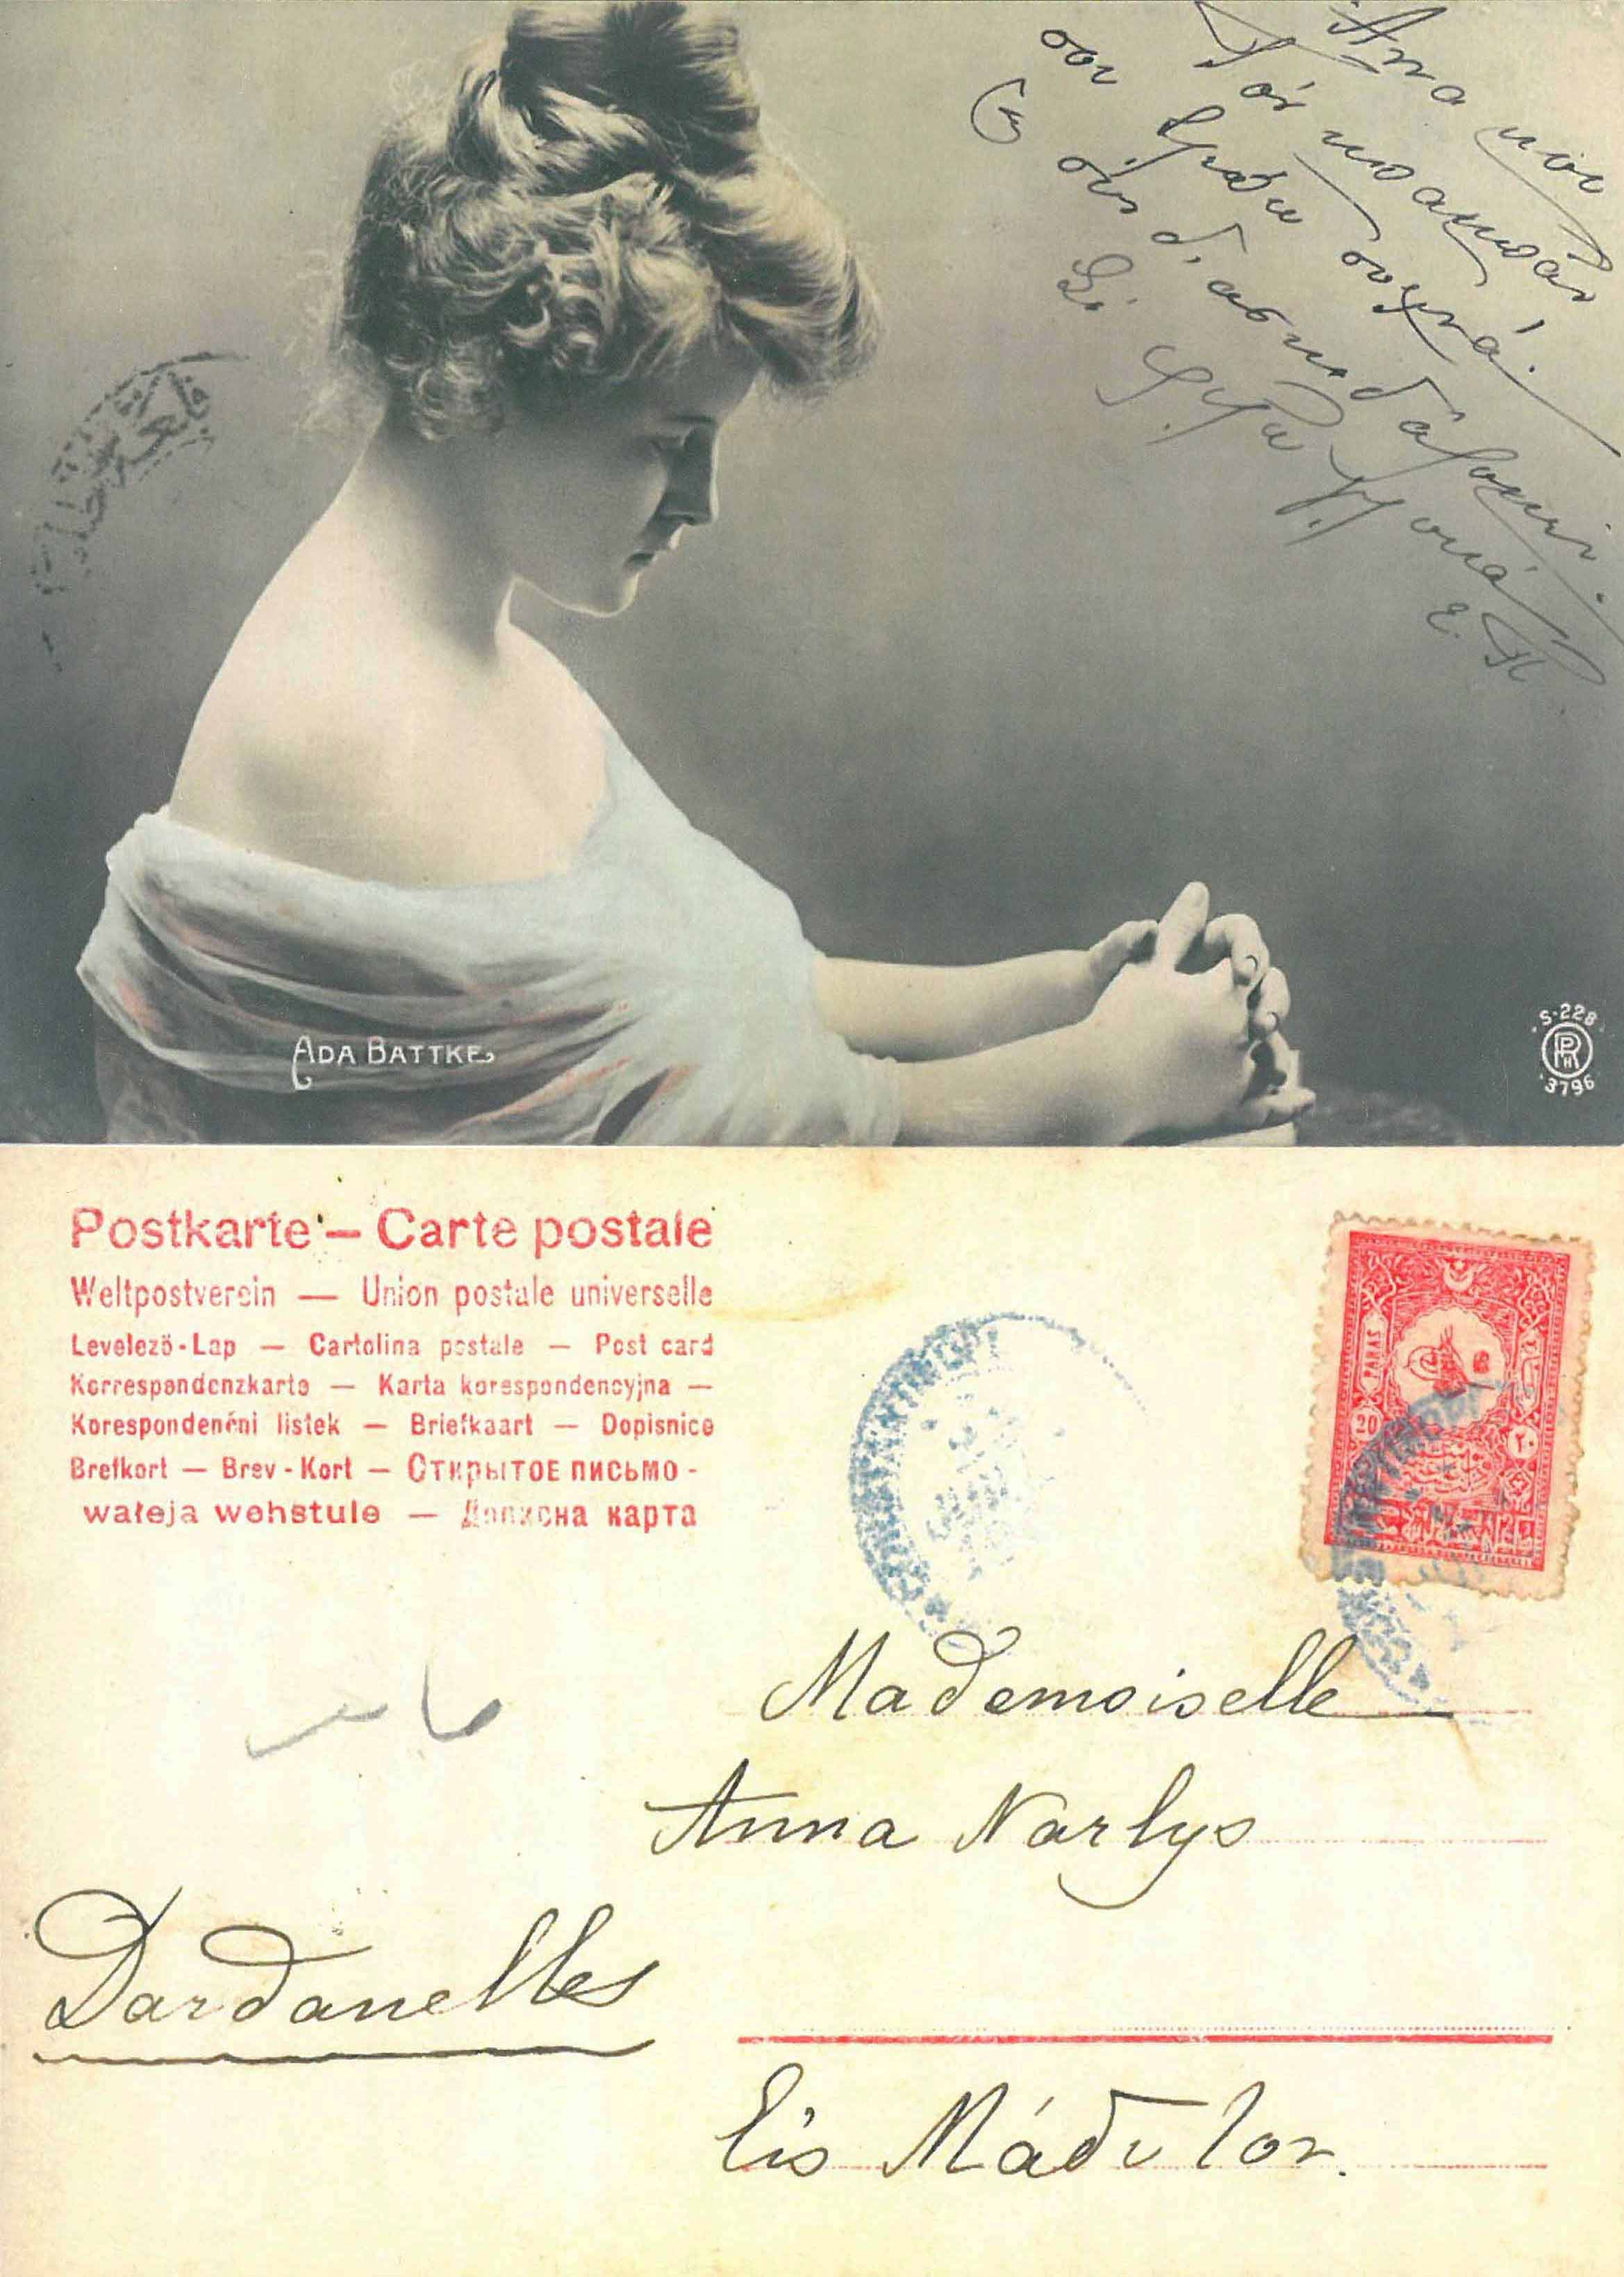 Άννα μου
Τόν μπαμπάν
σου γράφω συχνά.
Σέ φιλώ γλυκά
Ε. Π
ADA BATTKE
S-228
RPH
3796
Postkarte – Carte postale
Weltpostverein — Union postale universelle
Levelező-Lap — Cartolina postale — Post card
Korrespondenzkarte — Karta korespondencyjna —
Korespondenční listek — Briefkaart — Dopisnice
Brefkort — Brev-Kort — Открытое письмо -
wałeja wehstule — Дописна карта
PARAS
20
٢٠
Mademoiselle
Anna Narlys
Dardanelles
Εἰς Μάδυτον.